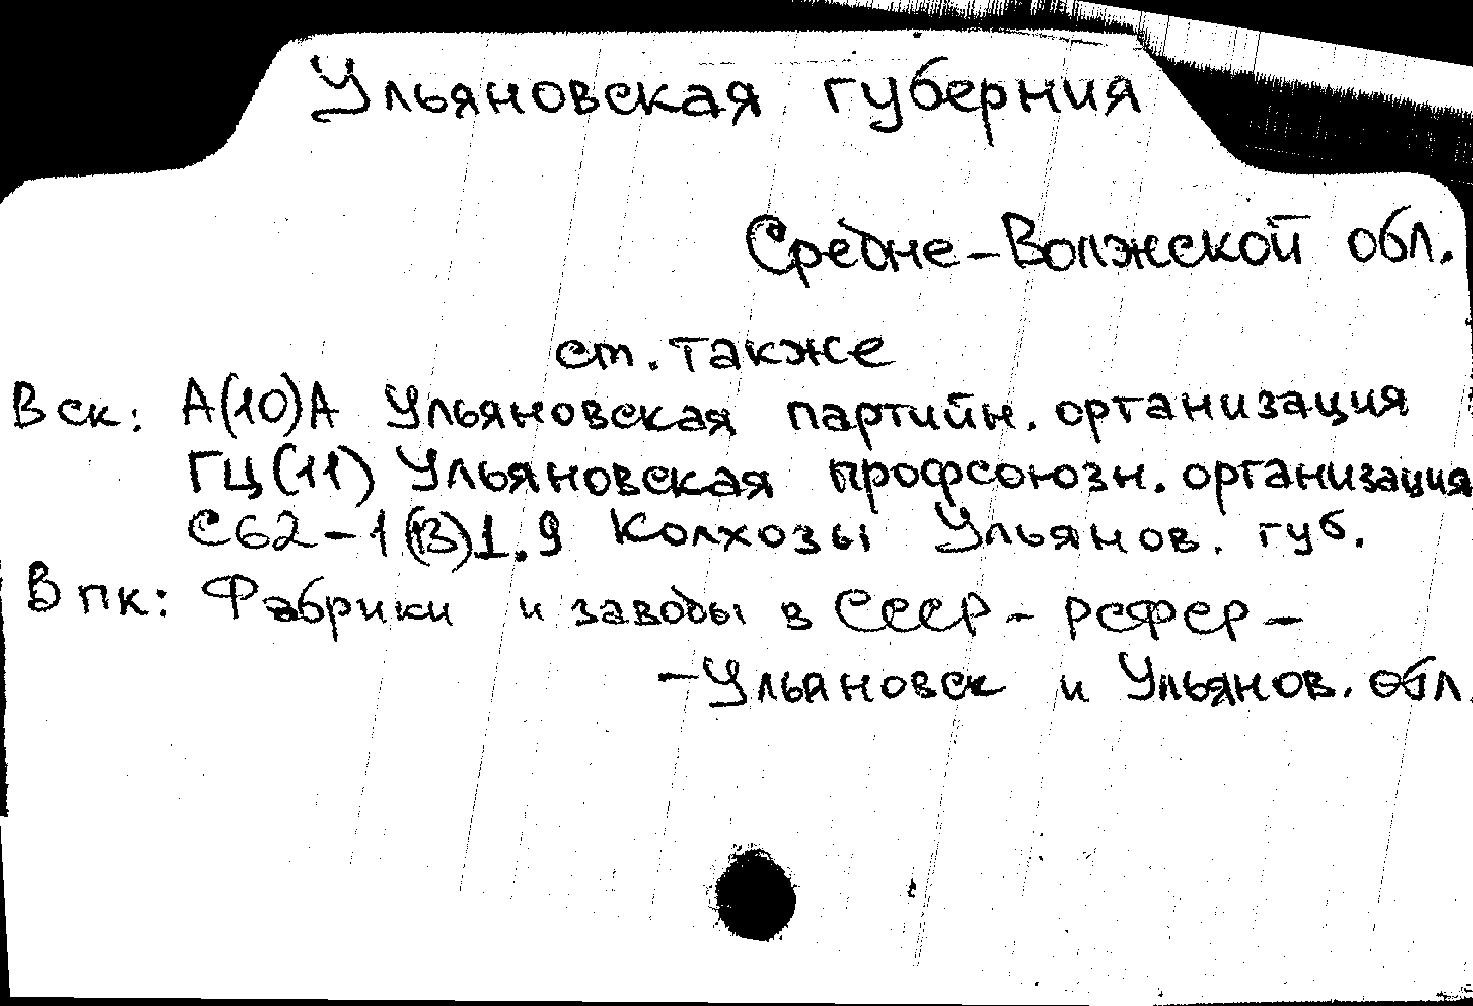 Ульяновская губерния
Средне-Волжской обл.
ст. также
В ск: А(10)А Ульяновская партийн. организация
ГЦ(11) Ульяновская профсоюзн. организация
С62-1(В)1.9 Колхозы Ульянов. губ.
В пк: Фабрики и заводы в СССР - РСФСР -
- Ульяновск и Ульянов. обл.